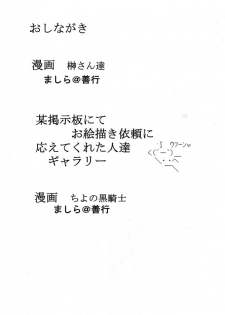 おしながき
漫画　榊さん達
ましら＠善行
某掲示板にて
お絵描き依頼に
応えてくれた人達
ギャラリー
漫画　ちよの黒騎士
ましら＠善行